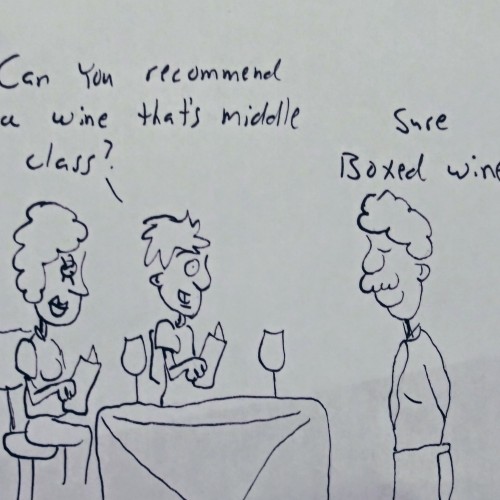 Can you recommend
a wine that's middle
class?
Sure
Boxed wine